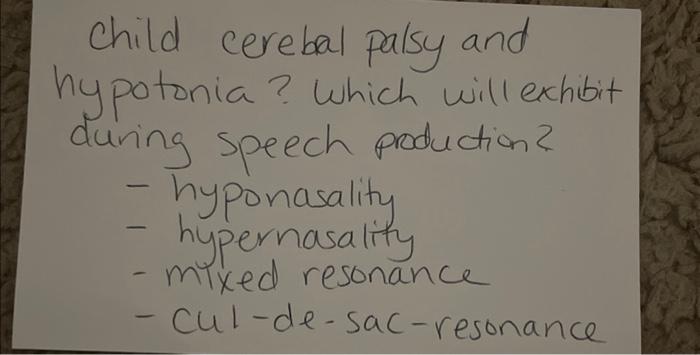 child cerebal palsy and
hypotonia? Which will exhibit
during speech production?
- hyponasality
- hypernasality
- mixed resonance
- cul-de-sac-resonance